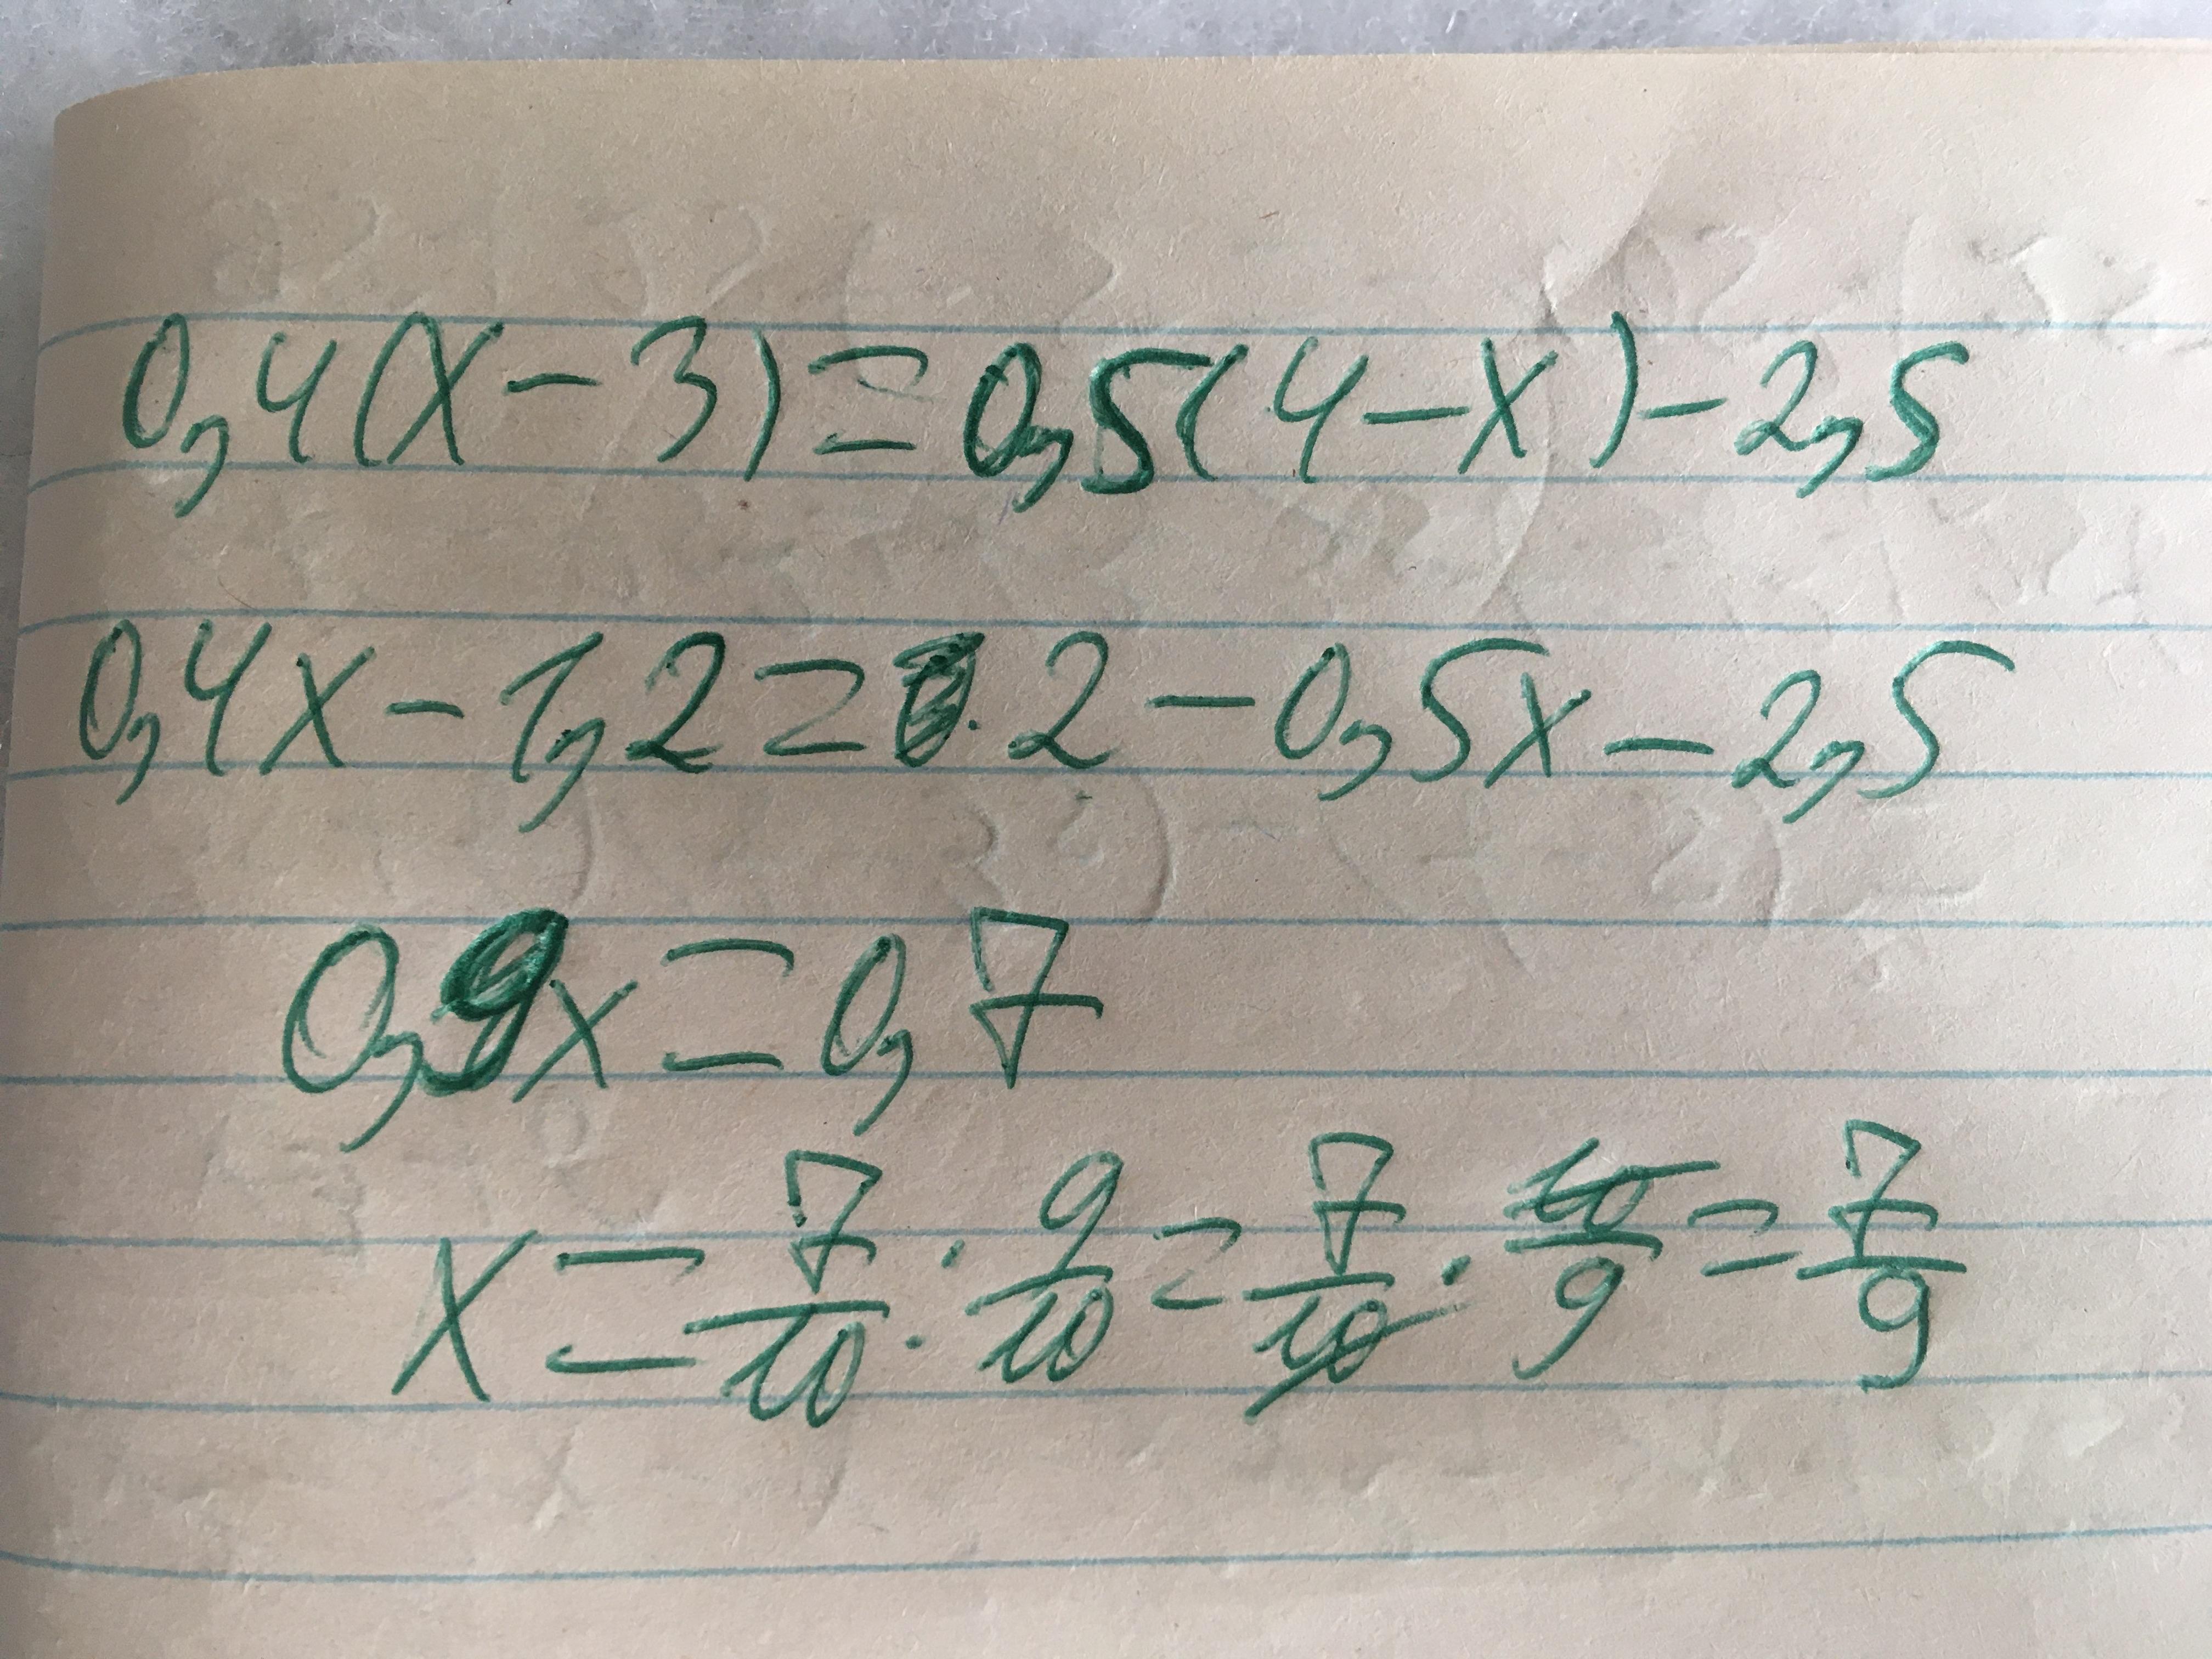 0,4(x-3)=0,5(4-x)-2,5
0,4x-1,2=2-0,5x-2,5
0,9x=0,7
x=7/10:9/10=7/10·10/9=7/9